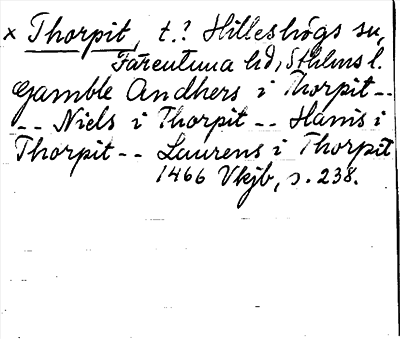 x Thorpit, t.? Hilleshögs sn,
Färentuna hd, Sthlms l.
Gamble Andhers i Thorpit --
-- Niels i Thorpit -- Hanis i
Thorpit -- Laurens i Thorpit
1466 Vkjb, s. 238.